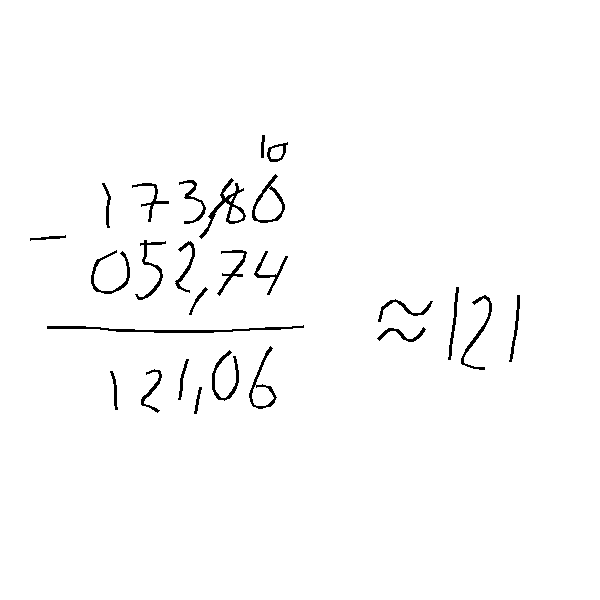 10
173,80
- 052,74
121,06
≈121